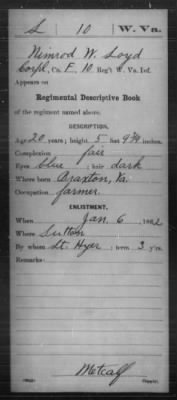 L 10 W. Va.
Nimrod W. Loyd
Corpl, Co. F, 10 Reg't W. Va. Inf.
Appears on
Regimental Descriptive Book
of the regiment named above.
DESCRIPTION.
Age 20 years; height 5 feet 9¾ inches.
Complexion fair
Eyes blue; hair dark
Where born Braxton, Va.
Occupation farmer.
ENLISTMENT.
When Jan. 6, 1862
Where Sutton
By whom Lt. Hyer; term 3 y'rs.
Remarks:
Metcalf